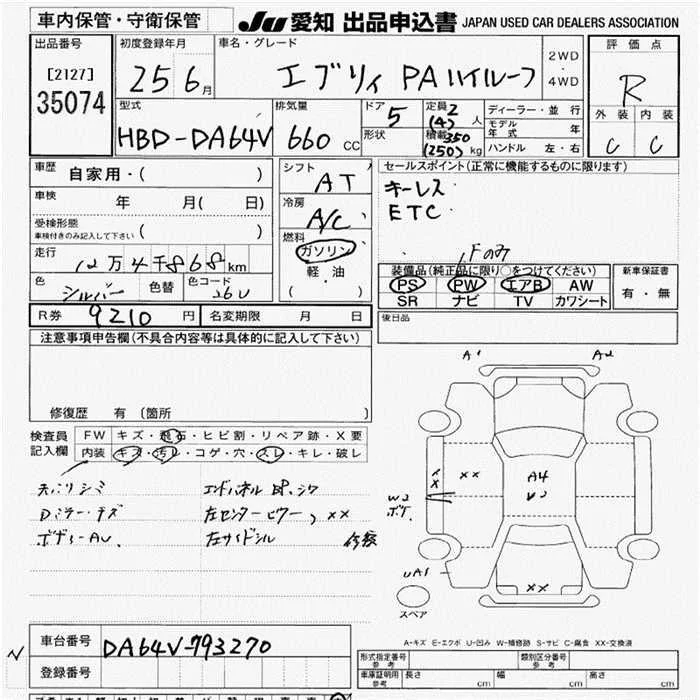 車内保管・守衛保管
JU 愛知 出品申込書 JAPAN USED CAR DEALERS ASSOCIATION
出品番号
[2127]
35074
初度登録年月
25 6月
車名・グレード
エブリィ PAハイルーフ
2WD
・
4WD
評価点
R
型式
HBD-DA64V
排気量
660 CC
ドア 5
形状
定員 2
(4) 人
積載 350
(250) kg
ディーラー・並行
モデル年式 年
ハンドル 左・右
外装 内装
C C
車歴
自家用・( )
車検
年 月( 日)
受検形態
車検付きのみ記入して下さい ( )
走行
12万4千868km
色
シルバー
色替
色コード
26U
シフト
AT
冷房
A/C
燃料
ガソリン
軽・油
( )
セールスポイント(正常に機能するものに限ります)
キーレス
ETC
Fのみ
装備品(純正品に限り○をつけてください)
PS PW エアB AW
SR ナビ TV カワシート
新車保証書
有・無
R券 9210 円
名変期限 月 日
後日品
注意事項申告欄(不具合内容等は具体的に記入して下さい)
修復歴 有(箇所 )
検査員
記入欄
FW キズ・飛石・ヒビ割・リペア跡・X要
内装 キズ・汚レ・コゲ・穴・スレ・キレ・破レ
天バリシミ
Dミラーキズ
ボディーAU
エンドパネル BP.シワ
左センターピラー、××
左サイドシル 修検
A1 A2
××
××
A4
W2
W2
ボケ
UA1
××
スペア
A-キズ E-エクボ U-凹み W-補修跡 S-サビ C-腐食 XX-交換済
車台番号 DA64V-793270
登録番号
形式指定番号
参考
類別区分番号
参考
車庫証明用
参考
長さ cm 幅 cm 高さ cm